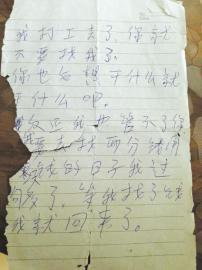 我打工去了，你就
不要找我了。
你也应想干什么就
干什么吧。
反正我也管不了你
要去找两分钱用
钱的日子我过
够了，等我找了钱
我就回来了。